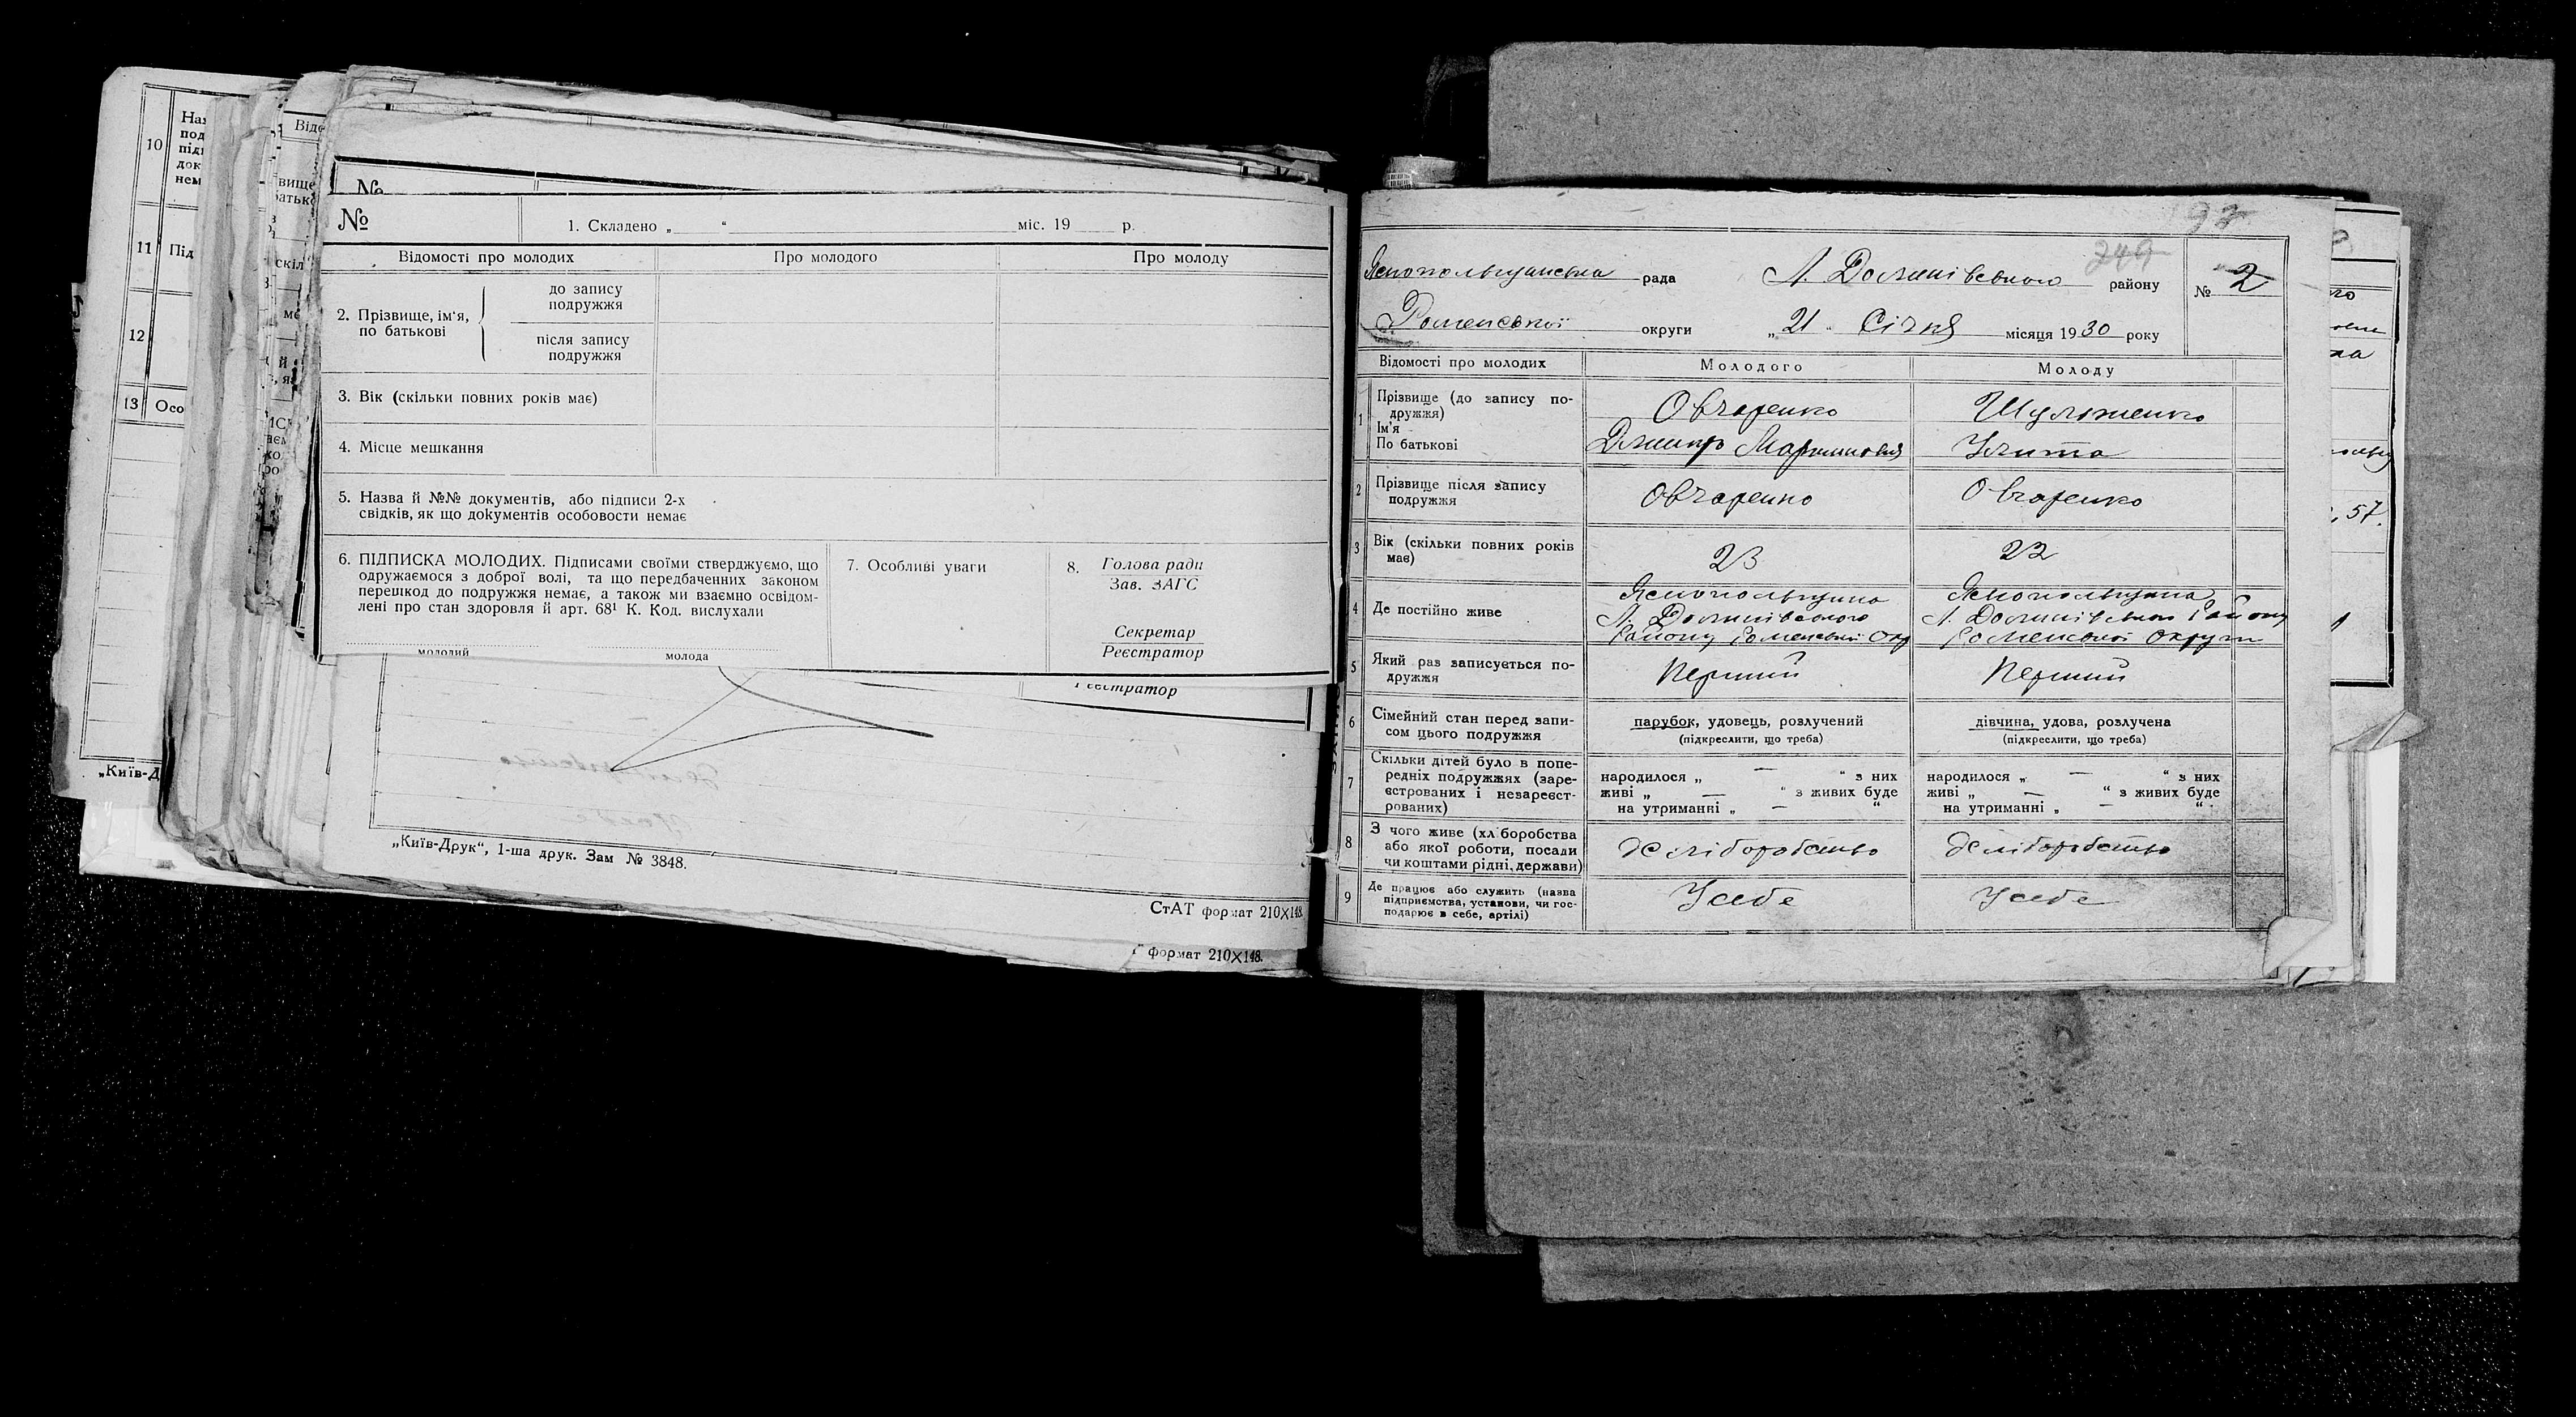 10
11 Під
12
13 Осо
„Київ-Д
№
№ 1. Складено „ “ міс. 19 р.
Відомості про молодих Про молодого Про молоду
2. Прізвище, ім'я, по батькові
до запису подружжя
після запису подружжя
3. Вік (скільки повних років має)
4. Місце мешкання
5. Назва й №№ документів, або підписи 2-х
свідків, як що документів особовости немає
6. ПІДПИСКА МОЛОДИХ. Підписами своїми стверджуємо, що
одружаємося з доброї волі, та що передбаченних законом
перешкод до подружжя немає, а також ми взаємно освідом-
лені про стан здоровля й арт. 68¹ К. Код. вислухали
молодий молода
7. Особливі уваги
8. Голова ради
Зав. ЗАГС
Секретар
Реєстратор
Реєстратор
„Київ-Друк“, 1-ша друк. Зам № 3848.
СтАТ формат 210X148.
формат 210X148.
249
рада Л. Долинівського району № 2
Роменської округи „21“ Січня місяця 1930 року
Відомості про молодих Молодого Молоду
1 Прізвище (до запису по-
дружжя) Овчаренко Шуляженко
Ім'я
По батькові Дмитр Мартинович Улита
2 Прізвище після запису
подружжя Овчаренко Овчаренко
3 Вік (скільки повних років
має) 23 22
4 Де постійно живе
Яснопольщина Яснопольщина
Л. Долинівського Л. Долинівського Району
Району Роменської Окр Роменської Округи
5 Який раз записується по-
дружжя Перший Перший
6 Сімейний стан перед запи-
сом цього подружжя
парубок, удовець, розлучений дівчина, удова, розлучена
(підкреслити, що треба) (підкреслити, що треба)
7 Скільки дітей було в попе-
редніх подружжях (заре-
єстрованих і незареєст-
рованих)
народилося „ — “ з них народилося „ — “ з них
живі „ — “ з живих буде живі „ — “ з живих буде
на утриманні „ — “ на утриманні „ — “
8 З чого живе (хліборобства
або якої роботи, посади
чи коштами рідні, держави)
хліборобство хліборобство
9 Де працює або служить (назва
підприємства, установи, чи гос-
подарює в себе, артілі)
У себе У себе
57.